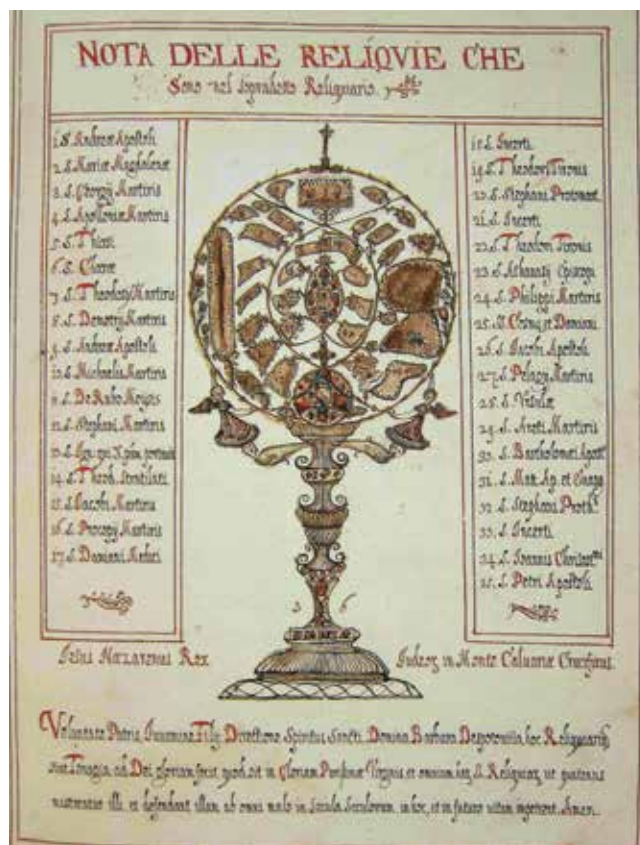 NOTA DELLE RELIQVIE CHE
Sono nel sopradetto Reliquario.
1. S. Andreæ Apostoli
2. S. Mariæ Magdalenæ
3. S. Georgij Martiris
4. S. Apolloniæ Martiris
5. S. Thirsi
6. S. Claræ
7. S. Theodosij Martiris
8. S. Demetrij Martiris
9. S. Andreæ Apostoli
10. S. Michaelis Martiris
11. S. De Rubo Moysis
12. S. Stephani Martiris
13. S.
14. S. Theod. Stratilati
15. S. Iacobi Martiris
16. S. Procopij Martiris
17. S. Damiani Medici
18. S. Incerti
19. S. Theodori Tironis
20. S. Stephani Protomart.
21. S. Incerti
22. S. Theodori Tironis
23. S. Athanasij Episcopi
24. S. Philippi Martiris
25. SS. Cosmæ et Damiani
26. S. Iacobi Apostoli
27. S. Pelagij Martiris
28. S. Vrsulæ
29. S. Martiris
30. S. Bartholomei Apost.
31. S. Matt. Ap. et Euang.
32. S. Stephani Proth.
33. S. Incerti
34. S. Ioannis
35. S. Petri Apostoli
3 6
Iesus Nazarenus Rex
in Monte Caluariæ Crucifixus.
Voluntate Patris, Filij Directione Spiritus Sancti Domina Barbara hoc Reliquarium
Dei gloriam fecit, quod sit in Gloriam Virginis et omnium S. Reliquiar. ut
illi et defendant illam ab omni malo in Secula Seculorum in hoc, et in futuro Amen.